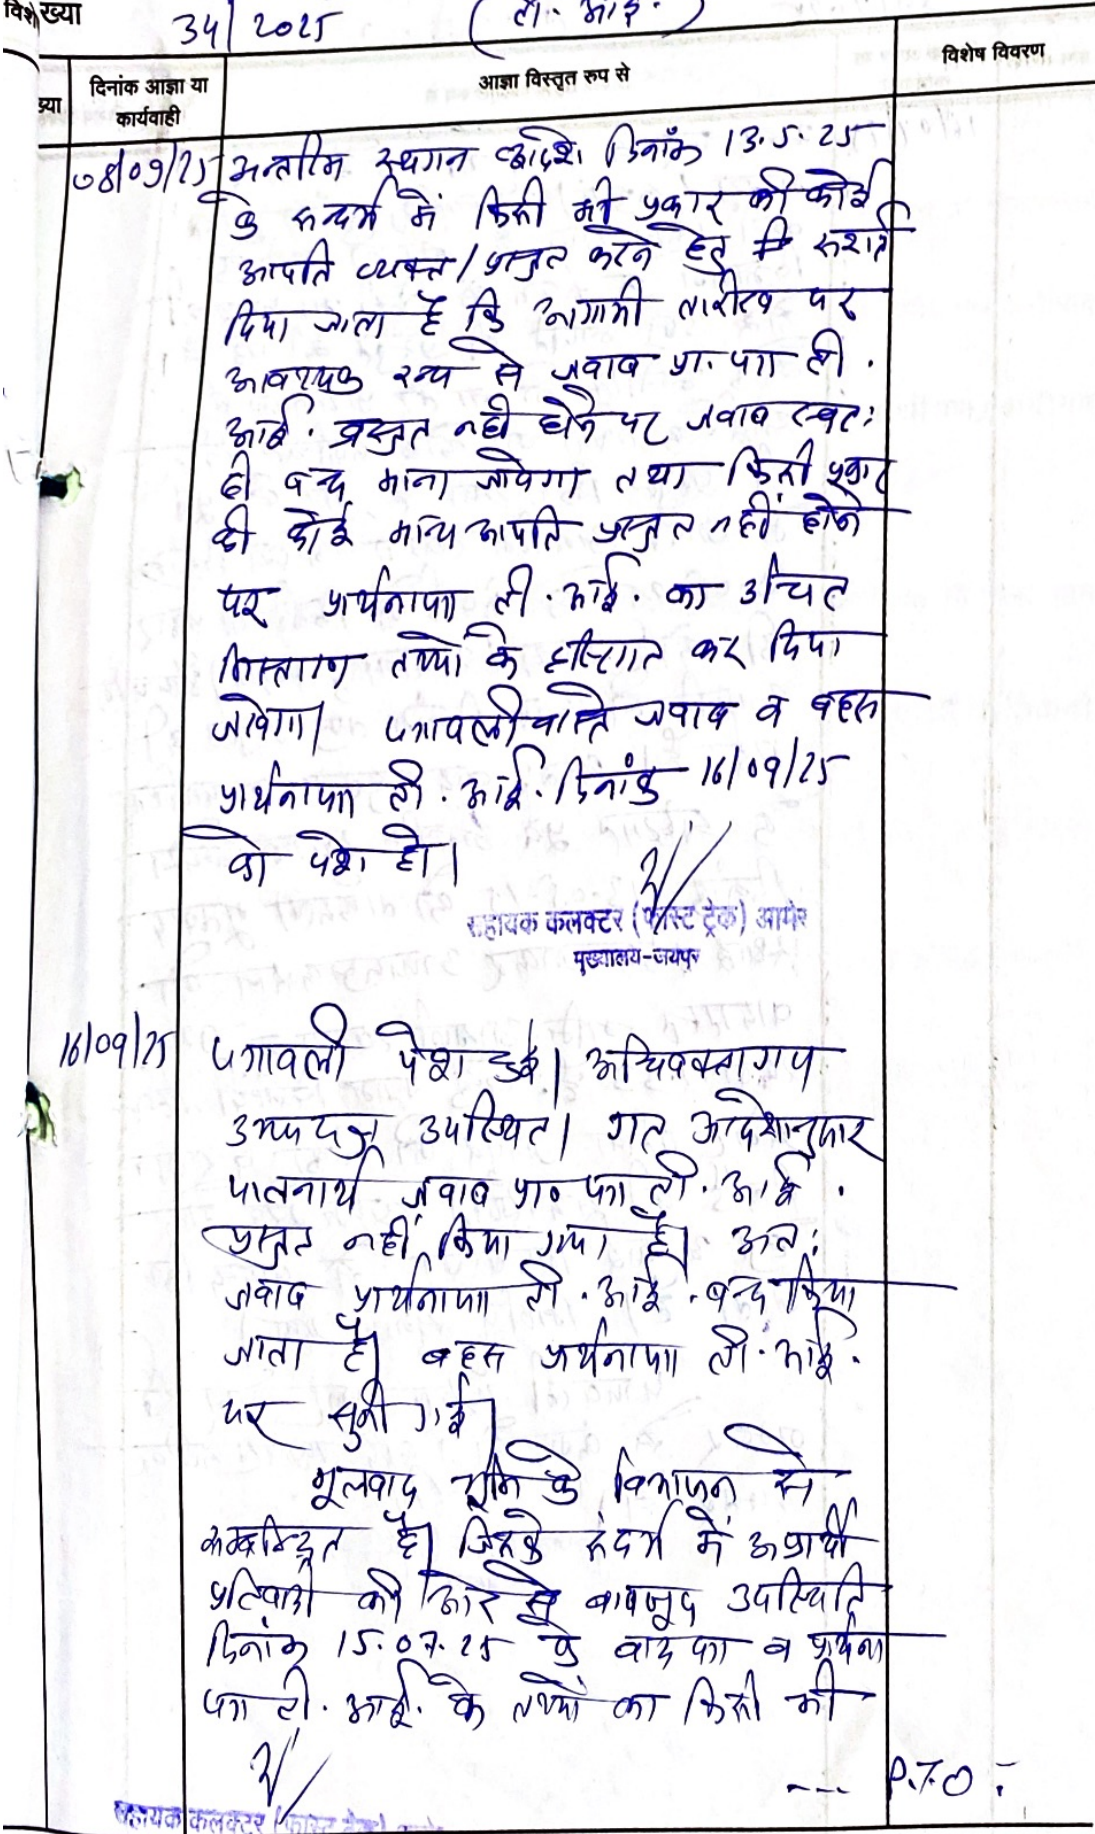 विशे ख्या
34/2025 (टी. आई.)
ख्या
दिनांक आज्ञा या
कार्यवाही
आज्ञा विस्तृत रुप से
विशेष विवरण
08/09/25 अन्तरिम स्थगन आदेश दिनाँक 13.5.25
के सन्दर्भ में किसी भी प्रकार की कोई
आपति व्यक्त/प्रस्तुत करने हेतु
दिया जाता है कि आगामी तारीख पर
आवश्यक रूप से जवाब प्रा. पत्र टी.
आई. प्रस्तुत नही होने पर जवाब स्वत:
ही बन्द माना जावेगा तथा किसी प्रकार
की कोई मान्य आपति प्रस्तुत नहीं होने
पर प्रार्थनापत्र टी. आई. का उचित
निस्तारण तथ्यो के दृष्टिगत कर दिया
जावेगा। पत्रावली वास्ते जवाब व बहस
प्रार्थनापत्र टी. आई. दिनांक 16/09/25
को पेश हो।
सहायक कलक्टर (फास्ट ट्रेक) आमेर
मुख्यालय-जयपुर
16/09/25 पत्रावली पेश हुई। अधिवक्तागण
उभयपक्ष उपस्थित। गत आदेशानुसार
पालनार्थ जवाब प्रा० पत्र टी. आई.
प्रस्तुत नहीं किया गया है। अत:
जवाब प्रार्थनापत्र टी. आई. बन्द किया
जाता है। बहस प्रार्थनापत्र टी. आई.
पर सुनी गई।
मूलवाद भूमि के विभाजन से
सम्बन्धित है। जिसके संदर्भ में अप्रार्थी
प्रतिवादी की ओर से बावजूद उपस्थिति
दिनांक 15.07.25 के वाद पत्र व प्रार्थना
पत्र टी. आई. के तथ्यों का किसी भी
--- P.T.O :
सहायक कलक्टर (फास्ट ट्रेक)